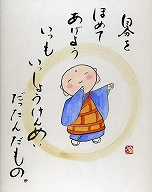 異を
ほめて
あげよう
いつも
いっしょうけんめい
だったんだもの。